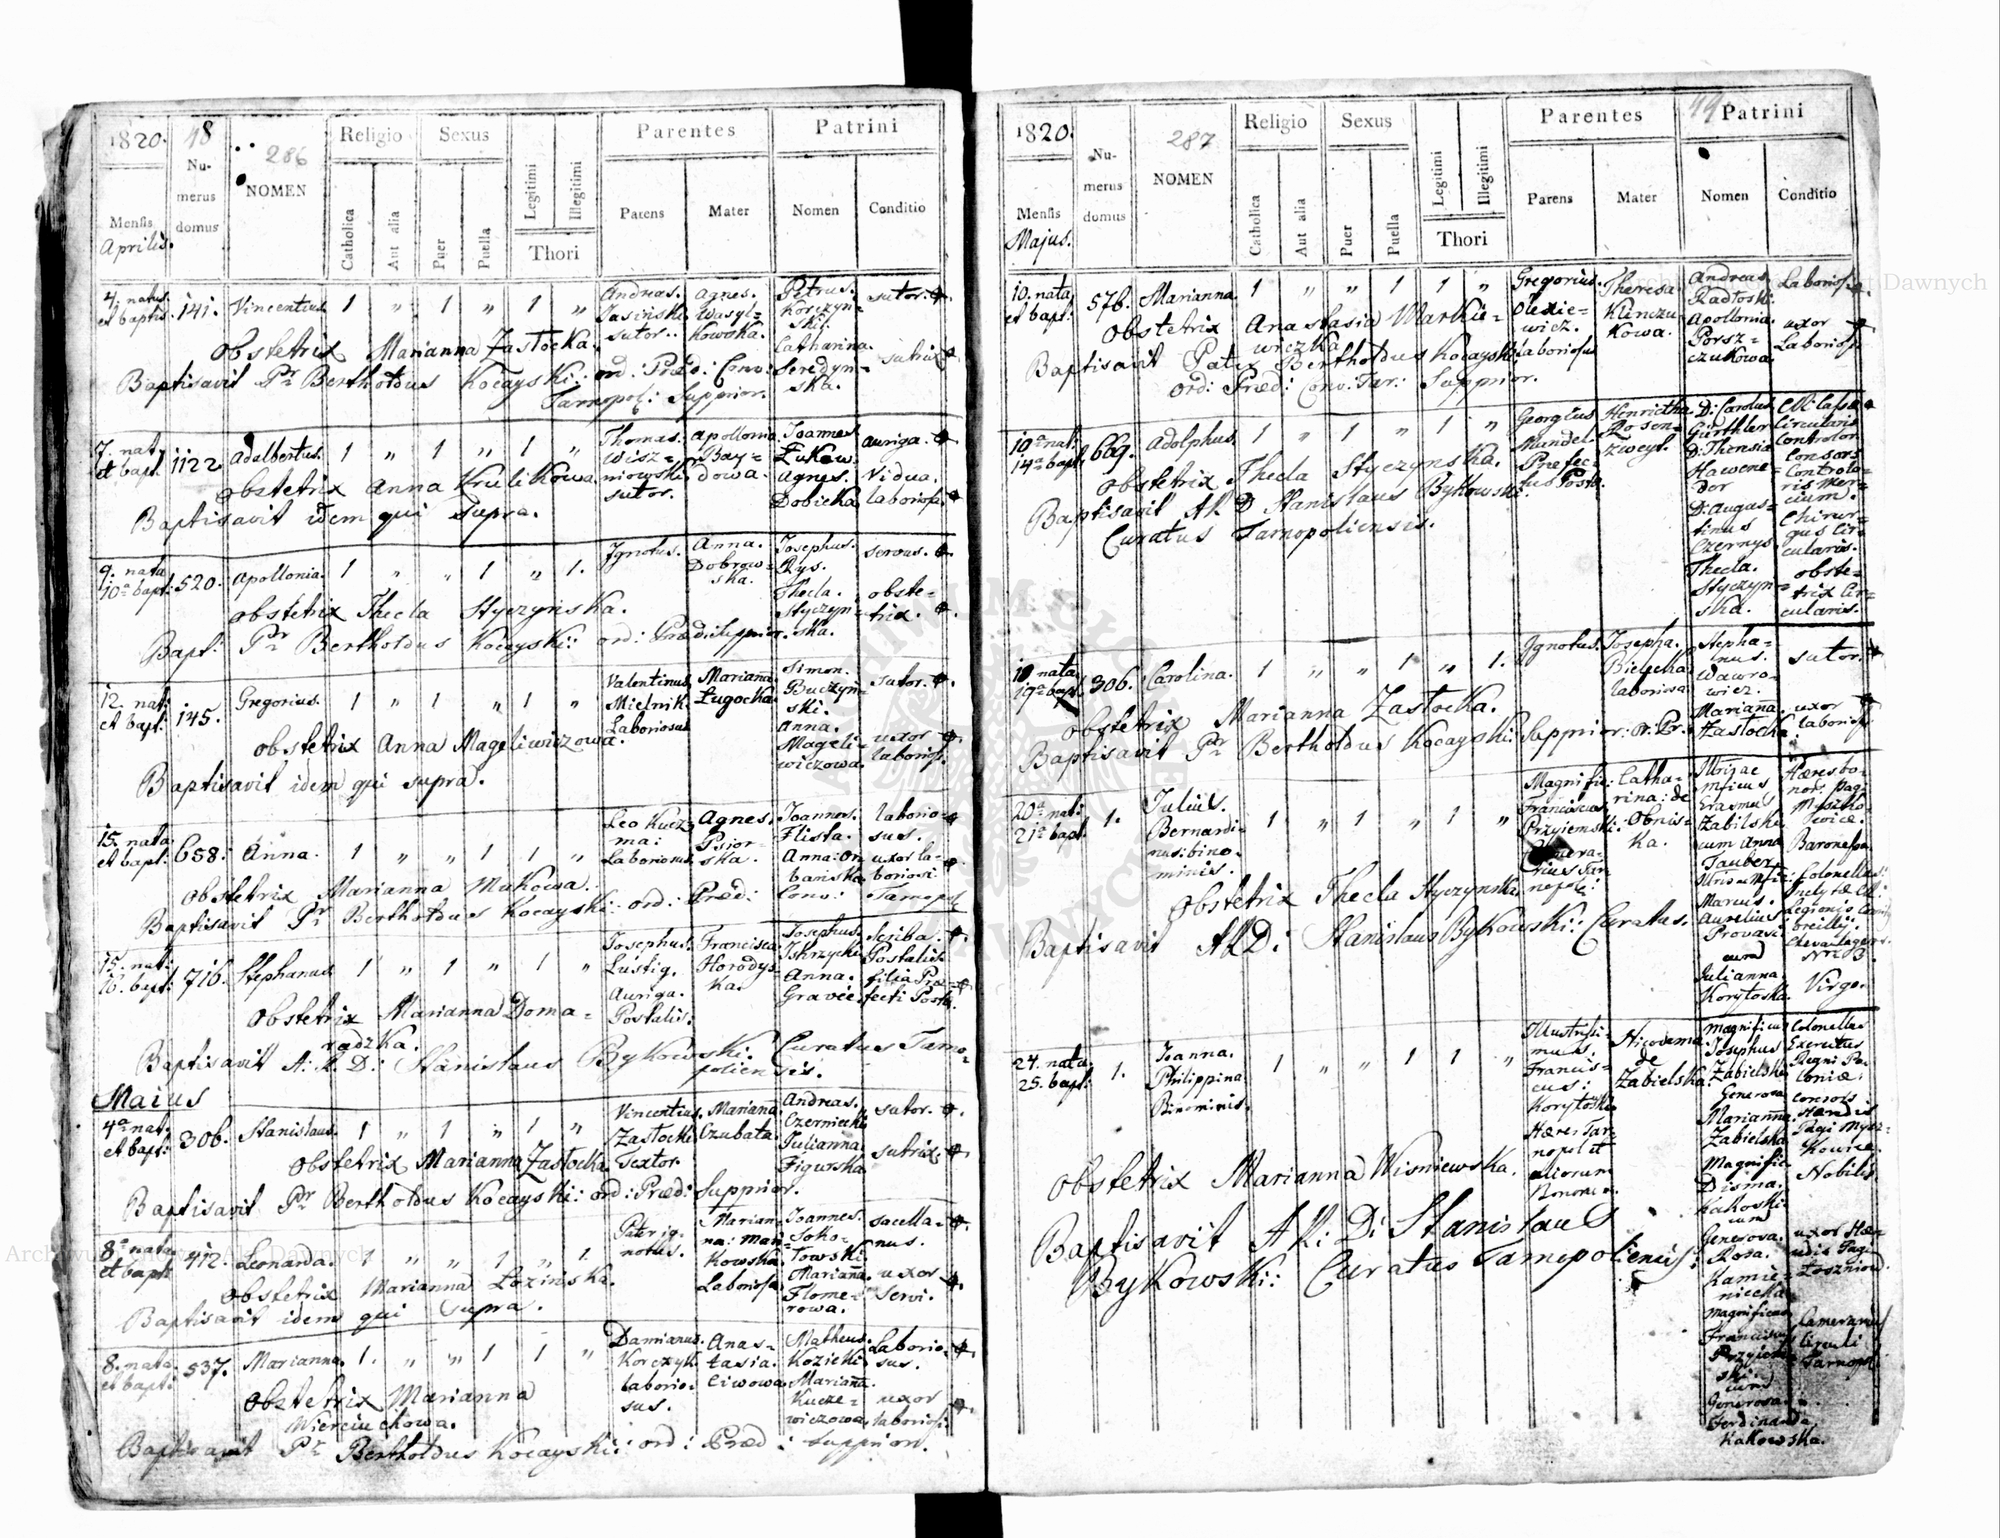 1820. 48 286 Religio Sexus Parentes Patrini
Numerus domus NOMEN Legitimi Illegitimi
Mensis Catholica Aut alia Puer Puella Thori Parens Mater Nomen Conditio
Aprilis.
4. natus et baptis: 141. Vincentius 1 " 1 " 1 "
Andreas. Jasinski sutor.
Agnes. Wasylkowska.
Petrus. Korczynski. sutor.
Catharina. Seredynska. sutrix
Obstetrix Marianna Zastocka.
Baptisavit Pr Bertholdus Kocayski: ord: Præd: Conv:
Tarnopol: Supprior.
7. nat: et bapt 1122. Adalbertus. 1 " 1 " 1 "
Thomas. Wiszniowski sutor.
Apollonia Baydowa.
Joannes Łukow. auriga.
Agnes. Dobicka Vidua. laborios:
Obstetrix Anna Krulikowa.
Baptisavit idem qui supra.
9. nata 10a bapt: 520. Apollonia. 1 " " 1 " 1.
Ignotus.
Anna. Dobrowska.
Josephus. Rys. servus.
Thecla. Styczynska. obstetrix.
Obstetrix Thecla Styczynska.
Bapt: Pr Bertholdus Kocayski: ord: Præd: Suppior.
12. nat: et bapt: 145. Gregorius. 1 " 1 " 1 "
Valentinus Mielnik Laboriosus
Mariana Ługocka.
Simon. Buczynski. sutor.
Anna. Mageliwiczowa. uxor laborios:
Obstetrix Anna Mageliwiczowa.
Baptisavit idem qui supra.
15. nata et bapt: 658. Anna. 1 " " 1 1 "
Leo Kuczma: Laboriosus.
Agnes. Psiorska.
Joannes. Flista. laboriosus.
Anna: Orbanska uxor laboriosi.
Obstetrix Marianna Mukowa.
Baptisavit Pr Bertholdus Kocayski: ord: Præd: Conv: Tarnopol
15. nat: 16. bapt: 716. Stephanus 1 " 1 " 1 "
Josephus. Lustig. Auriga. Postalis.
Francisca Horodyska.
Josephus. Iskrzycki Scriba. Postalis.
Anna. Gravie: filia Præfecti Postæ.
Obstetrix Marianna Domaradzka.
Baptisavit A: R. D: Stanislaus Bykowski: Curatus Tarnopoliensis.
Maius
4a nat: et bapt: 306. Stanislaus. 1 " 1 " 1 "
Vincentius. Zastocki Textor.
Mariana. Czubata.
Andreas. Czerniecki sutor.
Julianna. Figurska sutrix.
Obstetrix Marianna Zastocka
Baptisavit Pr Bertholdus Kocayski: ord: Præd: Suppior.
8a nata et bapt: 412. Leonarda. 1 " " 1 " 1.
Pater ignotus.
Marianna: Mankowska Laboriosa
Joannes. Sokotowski sacellanus.
Marianna Flomerowa. uxor servi.
Obstetrix Marianna Lozinska.
Baptisavit idem qui supra.
8. nata et bapt: 537. Marianna. 1. " " 1 1 "
Damianus. Korczyk laboriosus.
Anastasia. Ciwowa
Matheus. Kozicki Laboriosus.
Marianna. Kuczewiczowa uxor laborios:
Obstetrix Marianna Wierciuchowa.
Baptisavit Pr Bertholdus Kocayski: ord: Præd: Suppior.
1820. 287 Religio Sexus Parentes 49 Patrini
Numerus domus NOMEN Legitimi Illegitimi
Mensis Catholica Aut alia Puer Puella Thori Parens Mater Nomen Conditio
Majus.
10. nata et bapt: 576. Marianna. 1 " " 1 1 "
Gregorius. Olexiewicz. laboriosus
Theresa. Klinczukowa.
Andreas. Radłoski. Laborios:
Apollonia. Porszczukowa uxor Laborios:
Obstetrix Anastasia Markiewiczka.
Baptisavit Pater Bertholdus Kocayski
ord: Præd: Conv: Tar: Suppior.
10a nat: 14a bapt: 669. Adolphus. 1 " 1 " 1 "
Georgius Mandel. Præfectus Postæ.
Henrietha Rosenzweyt.
D: Carolus Gürthler Cassæ Circularis Controlor.
D: Theresia Hawender Consors Controloris Mercium.
D: Augustinus Czernys Chirurgus Circularis.
Thecla. Styczynska. obstetrix Circularis.
Obstetrix Thecla Styczynska.
Baptisavit AR D Stanislaus Bykowski:
Curatus Tarnopoliensis.
19 nata 19a bapt. 306. Carolina. 1 " " 1 " 1.
Ignotus. Josepha. Bielecka laboriosa
Stephanus. Wawrowicz. sutor.
Mariana. Zastocka uxor laborios:
Obstetrix Marianna Zastocka.
Baptisavit Pr Bertholdus Kocayski: Suppior: O: Pr:
20a nat: 21a bapt. 1. Julius. Bernardinus: binominis. 1 " 1 " 1 "
Magnific: Franciscus Przyiemski: Camerarius Tarnopol:
Catharina: de Obniska.
Erasmus Zabilski Hæres bonor. pag: Myszkowice.
cum Anna Tauber Baronessa
Marcus. Aurelius Provasi Colonellus:
Legionis Chevauxlegers. Nro 3.
cum Julianna. Korytoska Virgo.
Obstetrix Thecla Styczynska
Baptisavit ARD: Stanislaus Bykowski: Curatus.
24. nata 25. bapt: 1. Joanna. Philippina Binominis. 1 " " 1 1 "
Illustrissimus: Franciscus: Korytoski Hæres Tarnopol et aliorum Bonorum
Nicodema de Zabielska.
Magnificus Josephus Zabielski Colonellus Exercitus Regni Poloniæ.
Generosa Marianna Zabielska consors Hæredis Pagi Myszkowicæ.
Magnific: Disma. Kakoski Nobilis
cum Generosa. Rosa. Kamieniecka uxor Hæredis Pagi Łoszniow.
Magnificus Franciscus Przyiemski. Camerarius Circuli Tarnopol:
cum Generosa Ferdinanda. Kakowska.
Obstetrix Marianna Wisniewska.
Baptisavit AR: D: Stanislaus
Bykowski: Curatus Tarnopoliensis: